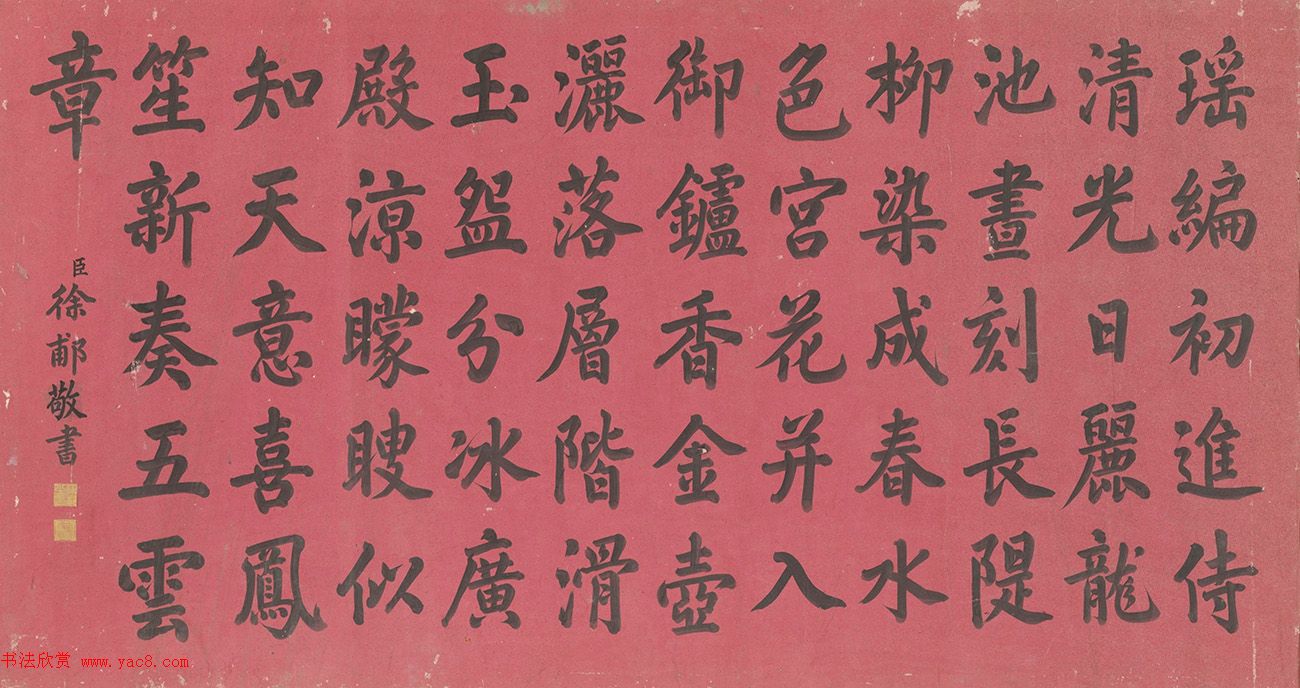 瑶編初進侍
清光日麗龍
池晝刻長隄
柳染成春水
色宮花并入
御鑪香金壺
灑落層階滑
玉盌分冰廣
殿涼矇瞍似
知天意喜鳳
笙新奏五雲
章
臣徐郙敬書
书法欣赏 www.yac8.com